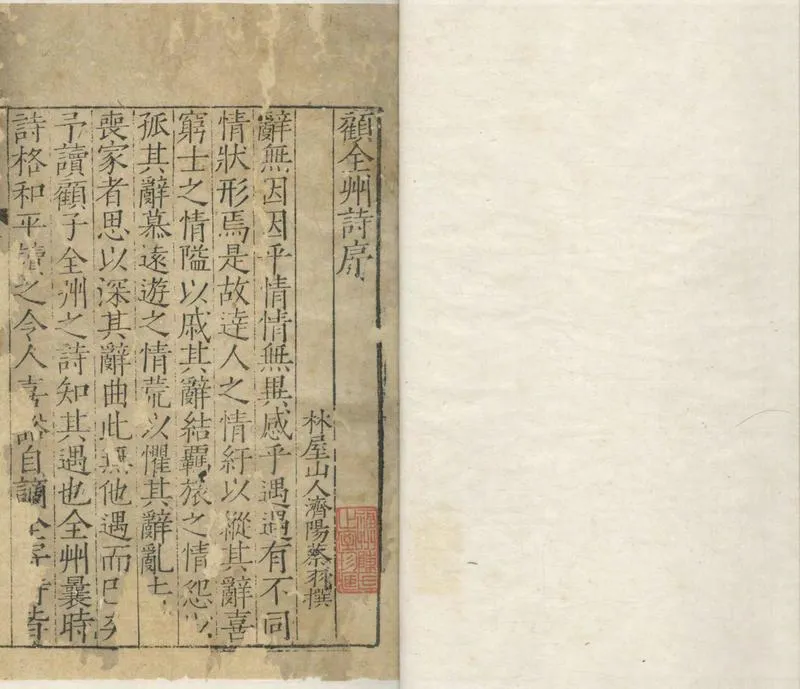 顧全州詩序
林屋山人濟陽蔡羽撰
辭無因因乎情情無異感乎遇遇有不同
情狀形焉是故逹人之情紓以縱其辭喜
窮士之情隘以戚其辭結羈旅之情怨以
孤其辭慕遠遊之情荒以懼其辭亂
喪家者思以深其辭曲此無他遇而巳矣
予讀顧子全州之詩知其遇也全州曩時
詩格和平讀之令人喜自謫全